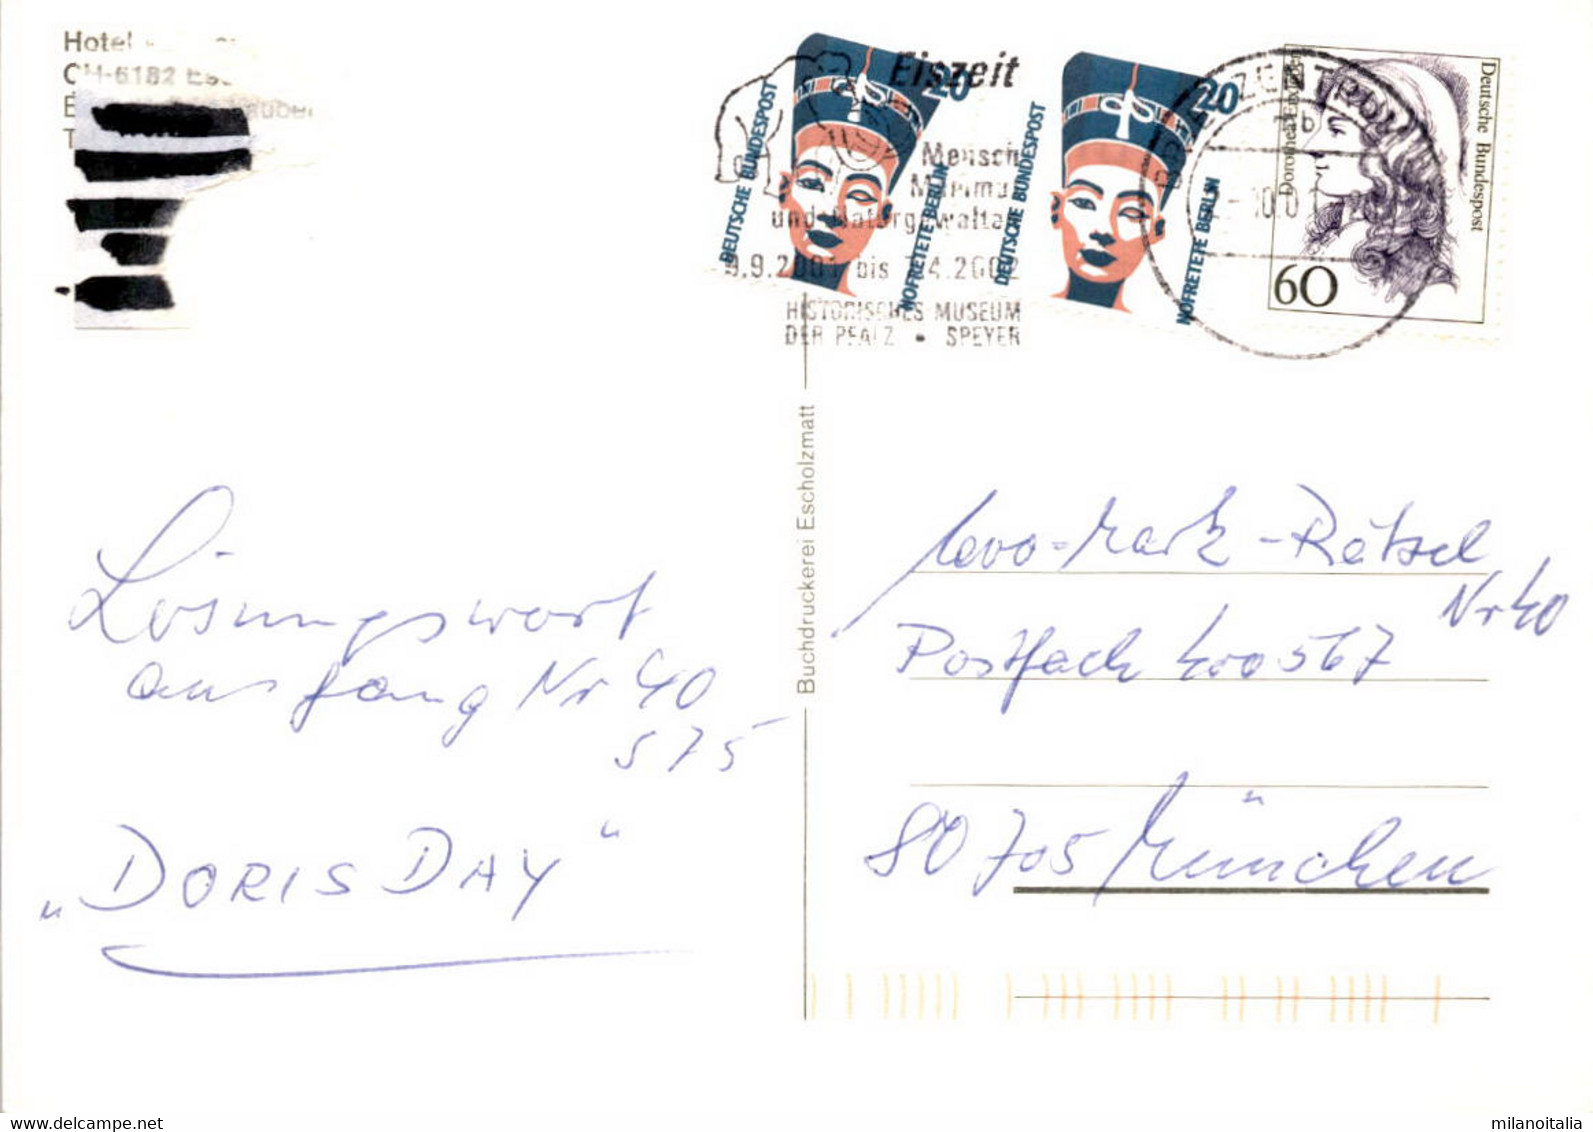 Hotel
CH-6182
Eiszeit
Mensch
Mammut
und Naturgewalten
9.9.2001 bis 7.4.2002
HISTORISCHES MUSEUM
DER PFALZ • SPEYER
DEUTSCHE BUNDESPOST
20
NOFRETETE BERLIN
DEUTSCHE BUNDESPOST
20
NOFRETETE BERLIN
BRIEFZENTRUM
10.01
Dorothea Erxleben
Deutsche Bundespost
60
Buchdruckerei Escholzmatt
Lösungswort
ausgang Nr 40
575
„DORIS DAY"
-Mark-Rätsel
Nr 40
Postfach 400567
80705 München
milanoitalia
www.delcampe.net